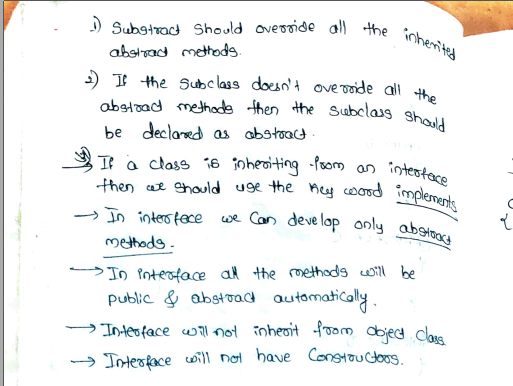 1) Substract should override all the inherited
abstract methods.
2) If the subclass doesn't override all the
abstract methods then the subclass should
be declared as abstract.
→ If a class is inheriting from an interface
then we should use the key word implements
→ In interface we can develop only abstract
methods.
→ In interface all the methods will be
public & abstract automatically.
→ Interface will not inherit from object class
→ Interface will not have Constructors.